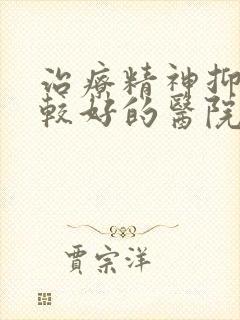 治療精神抑
較好的醫院
賈宗洋